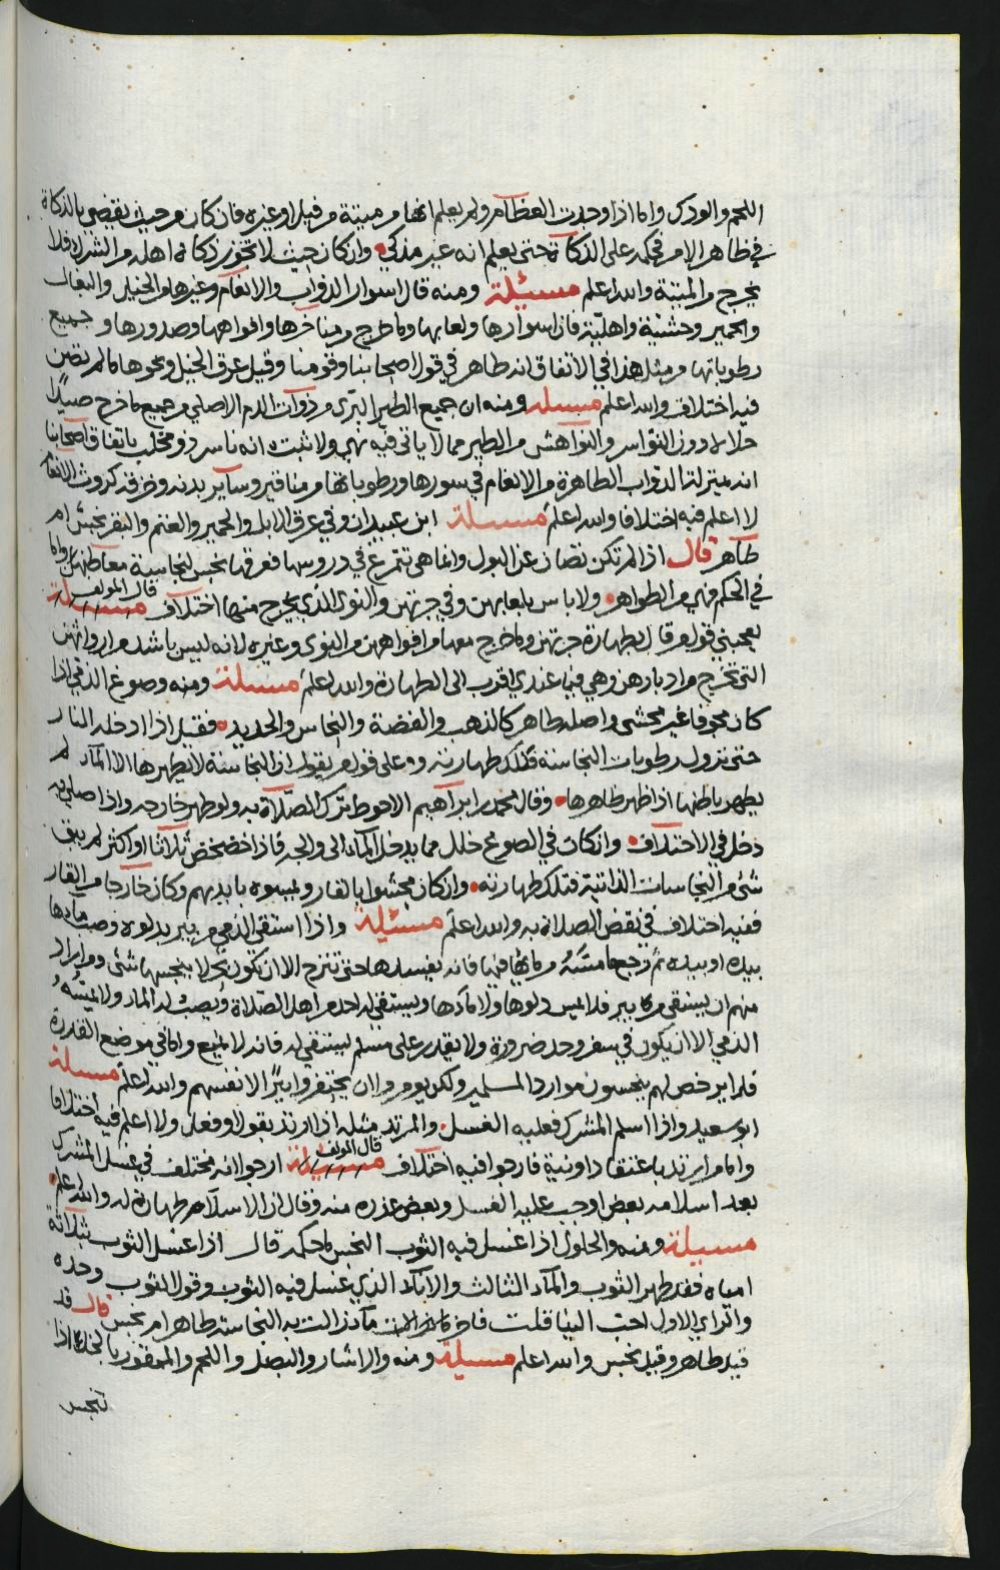 اللحم والودك واما اذا وجدت العظام ولم يعلم انها من ميتة من فيل او غيره فان كان من حيث يقضي بالذكاة
في ظاهر الامر فحكمه على الذكاة حتى يعلم انه غير مذكى وان كان حيث لا تجوز ذكاة اهله من الشرك فلا
يخرج من الميتة والله اعلم مسئلة ومنه قال اسوار الدواب والانعام وغيرها والخيل والبغال
والحمير وحشية واهلية فان اسوارها ولعابها وما خرج من مناخرها وافواهها وصدورها و جميع
رطوباتها ومثل هذا في الاتفاق انه طاهر في قول اصحابنا وقومنا وقيل عرق الخيل ونحوها ما لم تصن
فيه اختلاف والله اعلم مسئلة ومنه ان جميع الطير البري من ذوات الدم الاصلي من جميع ما خرج صيدا
حلالا دون النواسر والنواهش من الطير مما لا ياتي فيه نهي ولا ثبت انه ناسر ذو مخلب باتفاق اصحابنا
انه بمنزلة الدواب الطاهرة من الانعام في سورها ورطوباتها من مناقير وساير بدنه وخزقه كروث الانعام
لا اعلم فيه اختلافا والله اعلم مسئلة ابن عبيدان وفي عرق الابل والحمير والغنم والبقر نجس ام
طاهر قال اذا لم تكن تصان عن البول وانما هي تتمرغ في دروسها فعرقها نجس لنجاسة معاطنهن واما
في الحكم فهي من الطواهر ولا باس بلعابهن وفي جرتهن والنوى الذي يخرج منها اختلاف قال المولف مسئلة
يعجبني قول من قال بطهارة جرتهن وما خرج معها من افواههن من النوى وغيره لانه ليس باشد من ارواثهن
التي تخرج من ادبارهن وهي فيما عندي اقرب الى الطهارة والله اعلم مسئلة ومنه وصوغ الذمي اذا
كان مجوفا غير محشى واصله طاهر كالذهب والفضة والنحاس والحديد فقيل اذا ادخله النار
حتى تزول رطوبات النجاسة فذلك طهارته وعلى قول من يقول ان النجاسة لا يطهرها الا الماء لم
يطهر باطنها اذا طهر ظاهرها وقال محمد بن ابراهيم الاحوط ترك الصلاة به ولو طهر خارجه واذا صلى به
دخل في الاختلاف وان كان في الصوغ خلل مما يدخل الماء الى والجه فاذا خضخض ثلاثا او اكثر لم يبق
شئ من النجاسات الذاتية فتلك طهارته وان كان محشوا بالقار ويمسوه بايديهم وكان خارجا من القار
ففيه اختلاف في نقض الصلاة به والله اعلم مسئلة واذا استقى الذمي من بير بدلوه وصب ماءها
بيده او بيده ثم رجع ما مسه من مائها فيها فانه يفسدها حتى تنزح الا ان تكون بحرا لا ينجسها شئ ومن اراد
منهم ان يستقي من ماء بير فلا يمس دلوها ولا ماءها ويستقي له احد من اهل الصلاة ويصب له الماء ولا يمسه
الذمي الا ان يكون في سفر وحد ضرورة ولا يقدر على مسلم يستقي له فانه لا يمنع واما في موضع القدرة
فلم ار يرخص لهم ينجسون موارد المسلمين ولكن يومروا ان يحتفروا بيرا لانفسهم والله اعلم مسئلة
ابو سعيد واذا اسلم المشرك فعليه الغسل والمرتد مثله اذا ارتد بقول او فعل ولا اعلم فيه اختلافا
واما من ارتد باعتقاد او نية فارجوا فيه اختلاف قال المولف مسئلة ارجوا انه مختلف في غسل المشرك
بعد اسلامه بعض اوجب عليه الغسل وبعض عذره منه وقال ان الاسلام طهارة له والله اعلم
مسئلة ومنه والحلول اذا غسل فيه الثوب النجس ما حكمه قال اذا غسل الثوب بثلاثة
امياه فقد طهر الثوب والماء الثالث والاناء الذي غسل فيه الثوب وقول الثوب وحده
والراي الاول احب الينا قلت فاخر ماء زالت به النجاسة طاهر ام نجس قال قد
قيل طاهر وقيل نجس والله اعلم مسئلة ومنه والراشار والبصل واللحم والمعقور بالخل اذا
تنجس